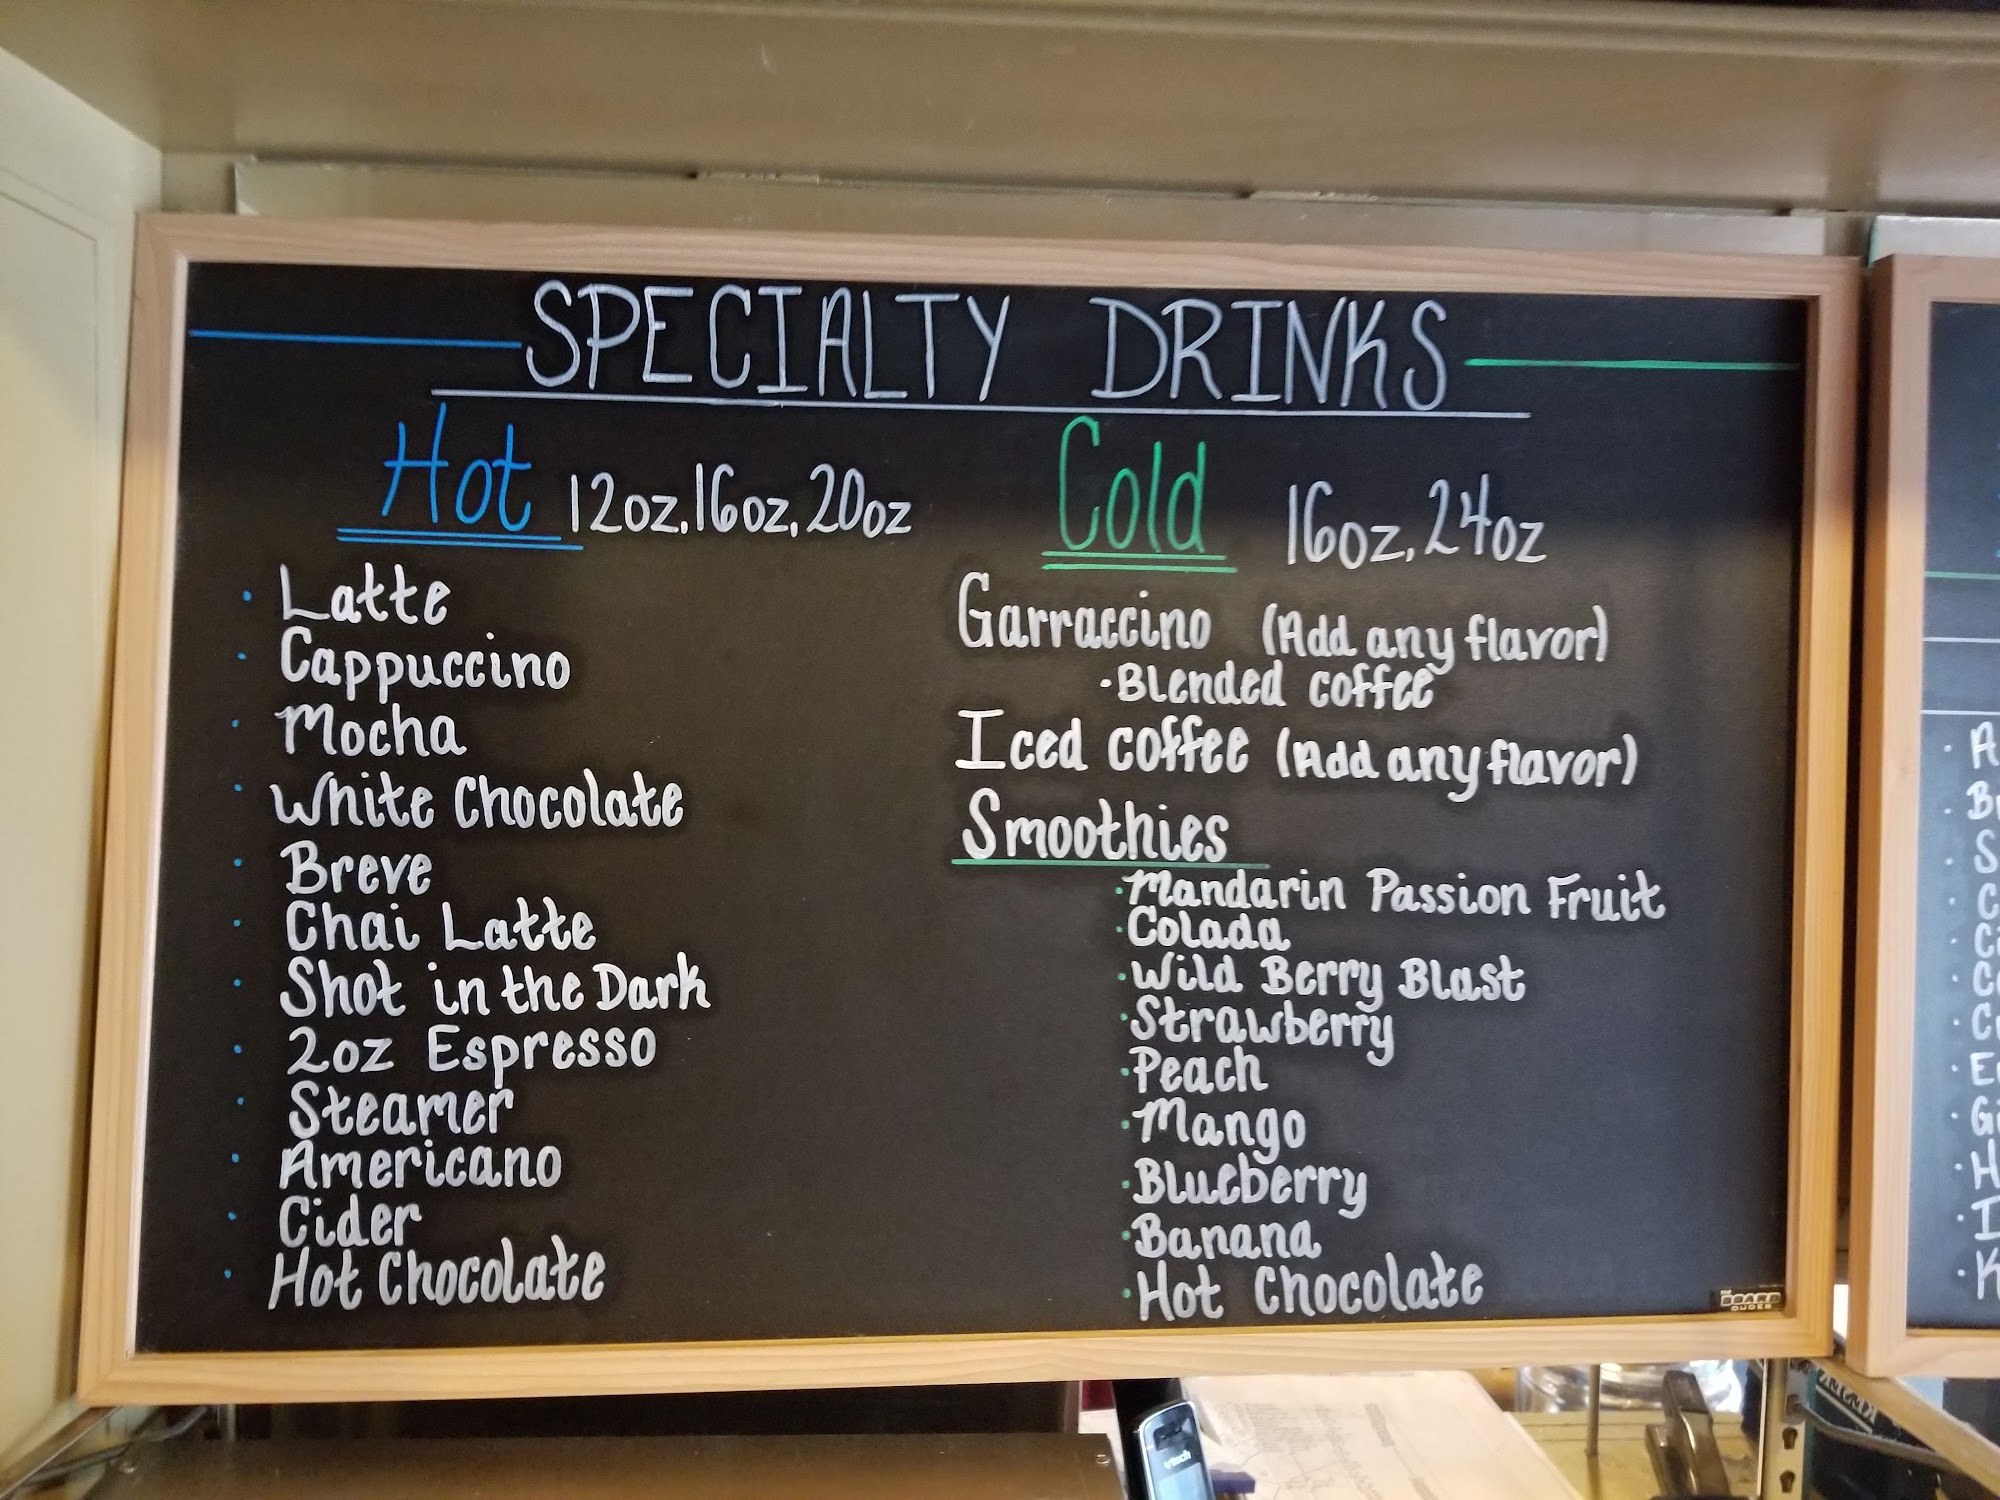 SPECIALTY DRINKS
Hot 12oz, 16oz, 20oz
Latte
Cappuccino
Mocha
White Chocolate
Breve
Chai Latte
Shot in the Dark
2oz Espresso
Steamer
Americano
Cider
Hot Chocolate
Cold 16oz, 24oz
Garraccino (Add any flavor)
Blended coffee
Iced coffee (Add any flavor)
Smoothies
Mandarin Passion Fruit
Colada
Wild Berry Blast
Strawberry
Peach
Mango
Blueberry
Banana
Hot Chocolate
THE BOARD DUDES
vtech